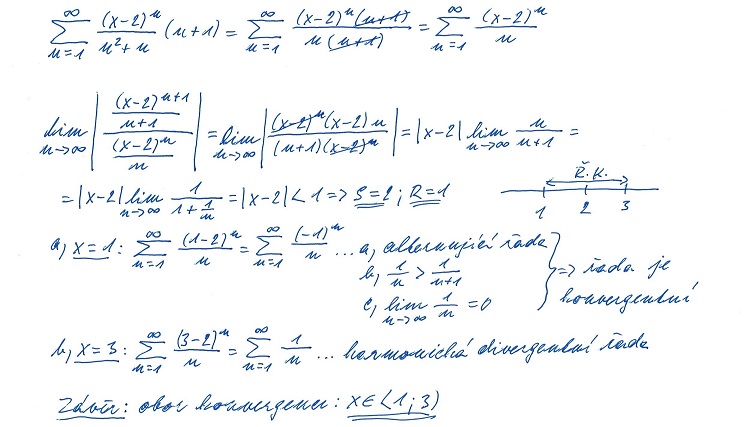 ∑_{n=1}^{∞} (x-2)^n/(n²+n) (n+1) = ∑_{n=1}^{∞} (x-2)^n (n+1)/(n(n+1)) = ∑_{n=1}^{∞} (x-2)^n/n
lim_{n→∞} | ((x-2)^{n+1}/(n+1)) / ((x-2)^n/n) | = lim_{n→∞} | (x-2)^n (x-2) n / ((n+1)(x-2)^n) | = |x-2| lim_{n→∞} n/(n+1) =
= |x-2| lim_{n→∞} 1/(1+1/n) = |x-2| < 1 => S=2 ; R=1
Ř.K.
1 2 3
a, x=1 : ∑_{n=1}^{∞} (1-2)^n/n = ∑_{n=1}^{∞} (-1)^n/n ... a, alternující řada
b, 1/n > 1/(n+1)
c, lim_{n→∞} 1/n = 0
} => řada je
konvergentní
b, x=3 : ∑_{n=1}^{∞} (3-2)^n/n = ∑_{n=1}^{∞} 1/n ... harmonická divergentní řada
Závěr: obor konvergence: x∈<1;3)